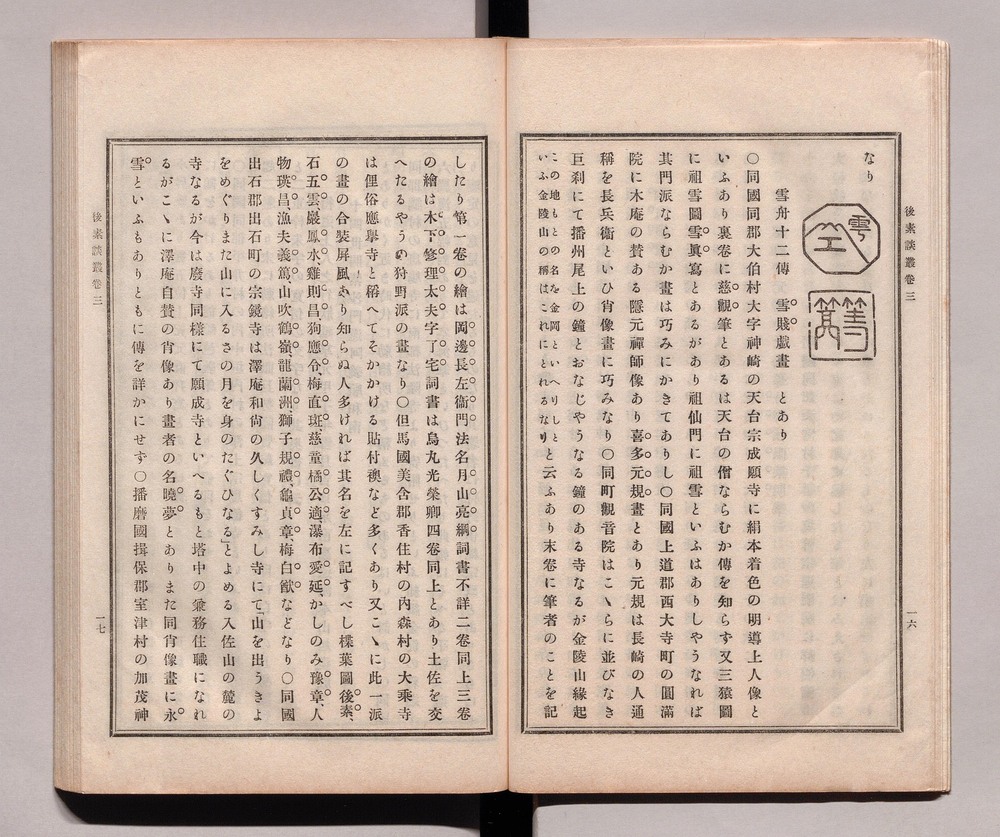 後素談叢卷三
一六
なり
雪舟十二傳　雪賤戯畫　とあり
〇同國同郡大伯村大字神崎の天台宗成願寺に絹本着色の明導上人像と
いふあり裏卷に慈觀筆とあるは天台の僧ならむか傳を知らず又三猿圖
に祖雪圖雪眞寫とあるがあり祖仙門に祖雪といふはありしやうなれば
其門派ならむか畫は巧みにかきてありし〇同國上道郡西大寺町の圓滿
院に木庵の賛ある隱元禪師像あり喜多元規畫とあり元規は長崎の人通
稱を長兵衞といひ肖像畫に巧みなり〇同町觀音院はこゝらに並びなき
巨刹にて播州尾上の鐘とおなじやうなる鐘のある寺なるが金陵山緣起
この地もとの名を金岡といへりしと
いふ金陵山の稱はこれにとれるなり
と云ふあり末卷に筆者のことを記
したり第一卷の繪は岡邊長左衞門法名月山亮綱詞書不詳二卷同上三卷
の繪は木下修理太夫字了宅詞書は烏丸光榮卿四卷同上とあり土佐を交
へたるやうの狩野派の畫なり〇但馬國美含郡香住村の內森村の大乘寺
は俚俗應擧寺と稱へてそかかける貼付襖など多くあり又こゝに此一派
の畫の合裝屛風あり知らぬ人多ければ其名を左に記すべし楪葉圖後素、
石五雲、巖鳳水、雞則昌、狗應令、梅直斑、慈童橘公適、瀑布愛延、かしのみ豫章、人
物瑛昌、漁夫義篤、山吹鶴嶺、龍蘭洲、獅子規禮、龜貞章、梅白猷などなり〇同國
出石郡出石町の宗鏡寺は澤庵和尙の久しくすみし寺にて「山を出うきよ
をめぐりまた山に入るさの月を身のたぐひなる」とよめる入佐山の麓の
寺なるが今は廢寺同樣にて願成寺といへるもと塔中の兼務住職になれ
るがこゝに澤庵自賛の肖像あり畫者の名曉夢とありまた同肖像畫に永
雪といふもありともに傳を詳かにせず〇播磨國揖保郡室津村の加茂神
後素談叢卷三
一七